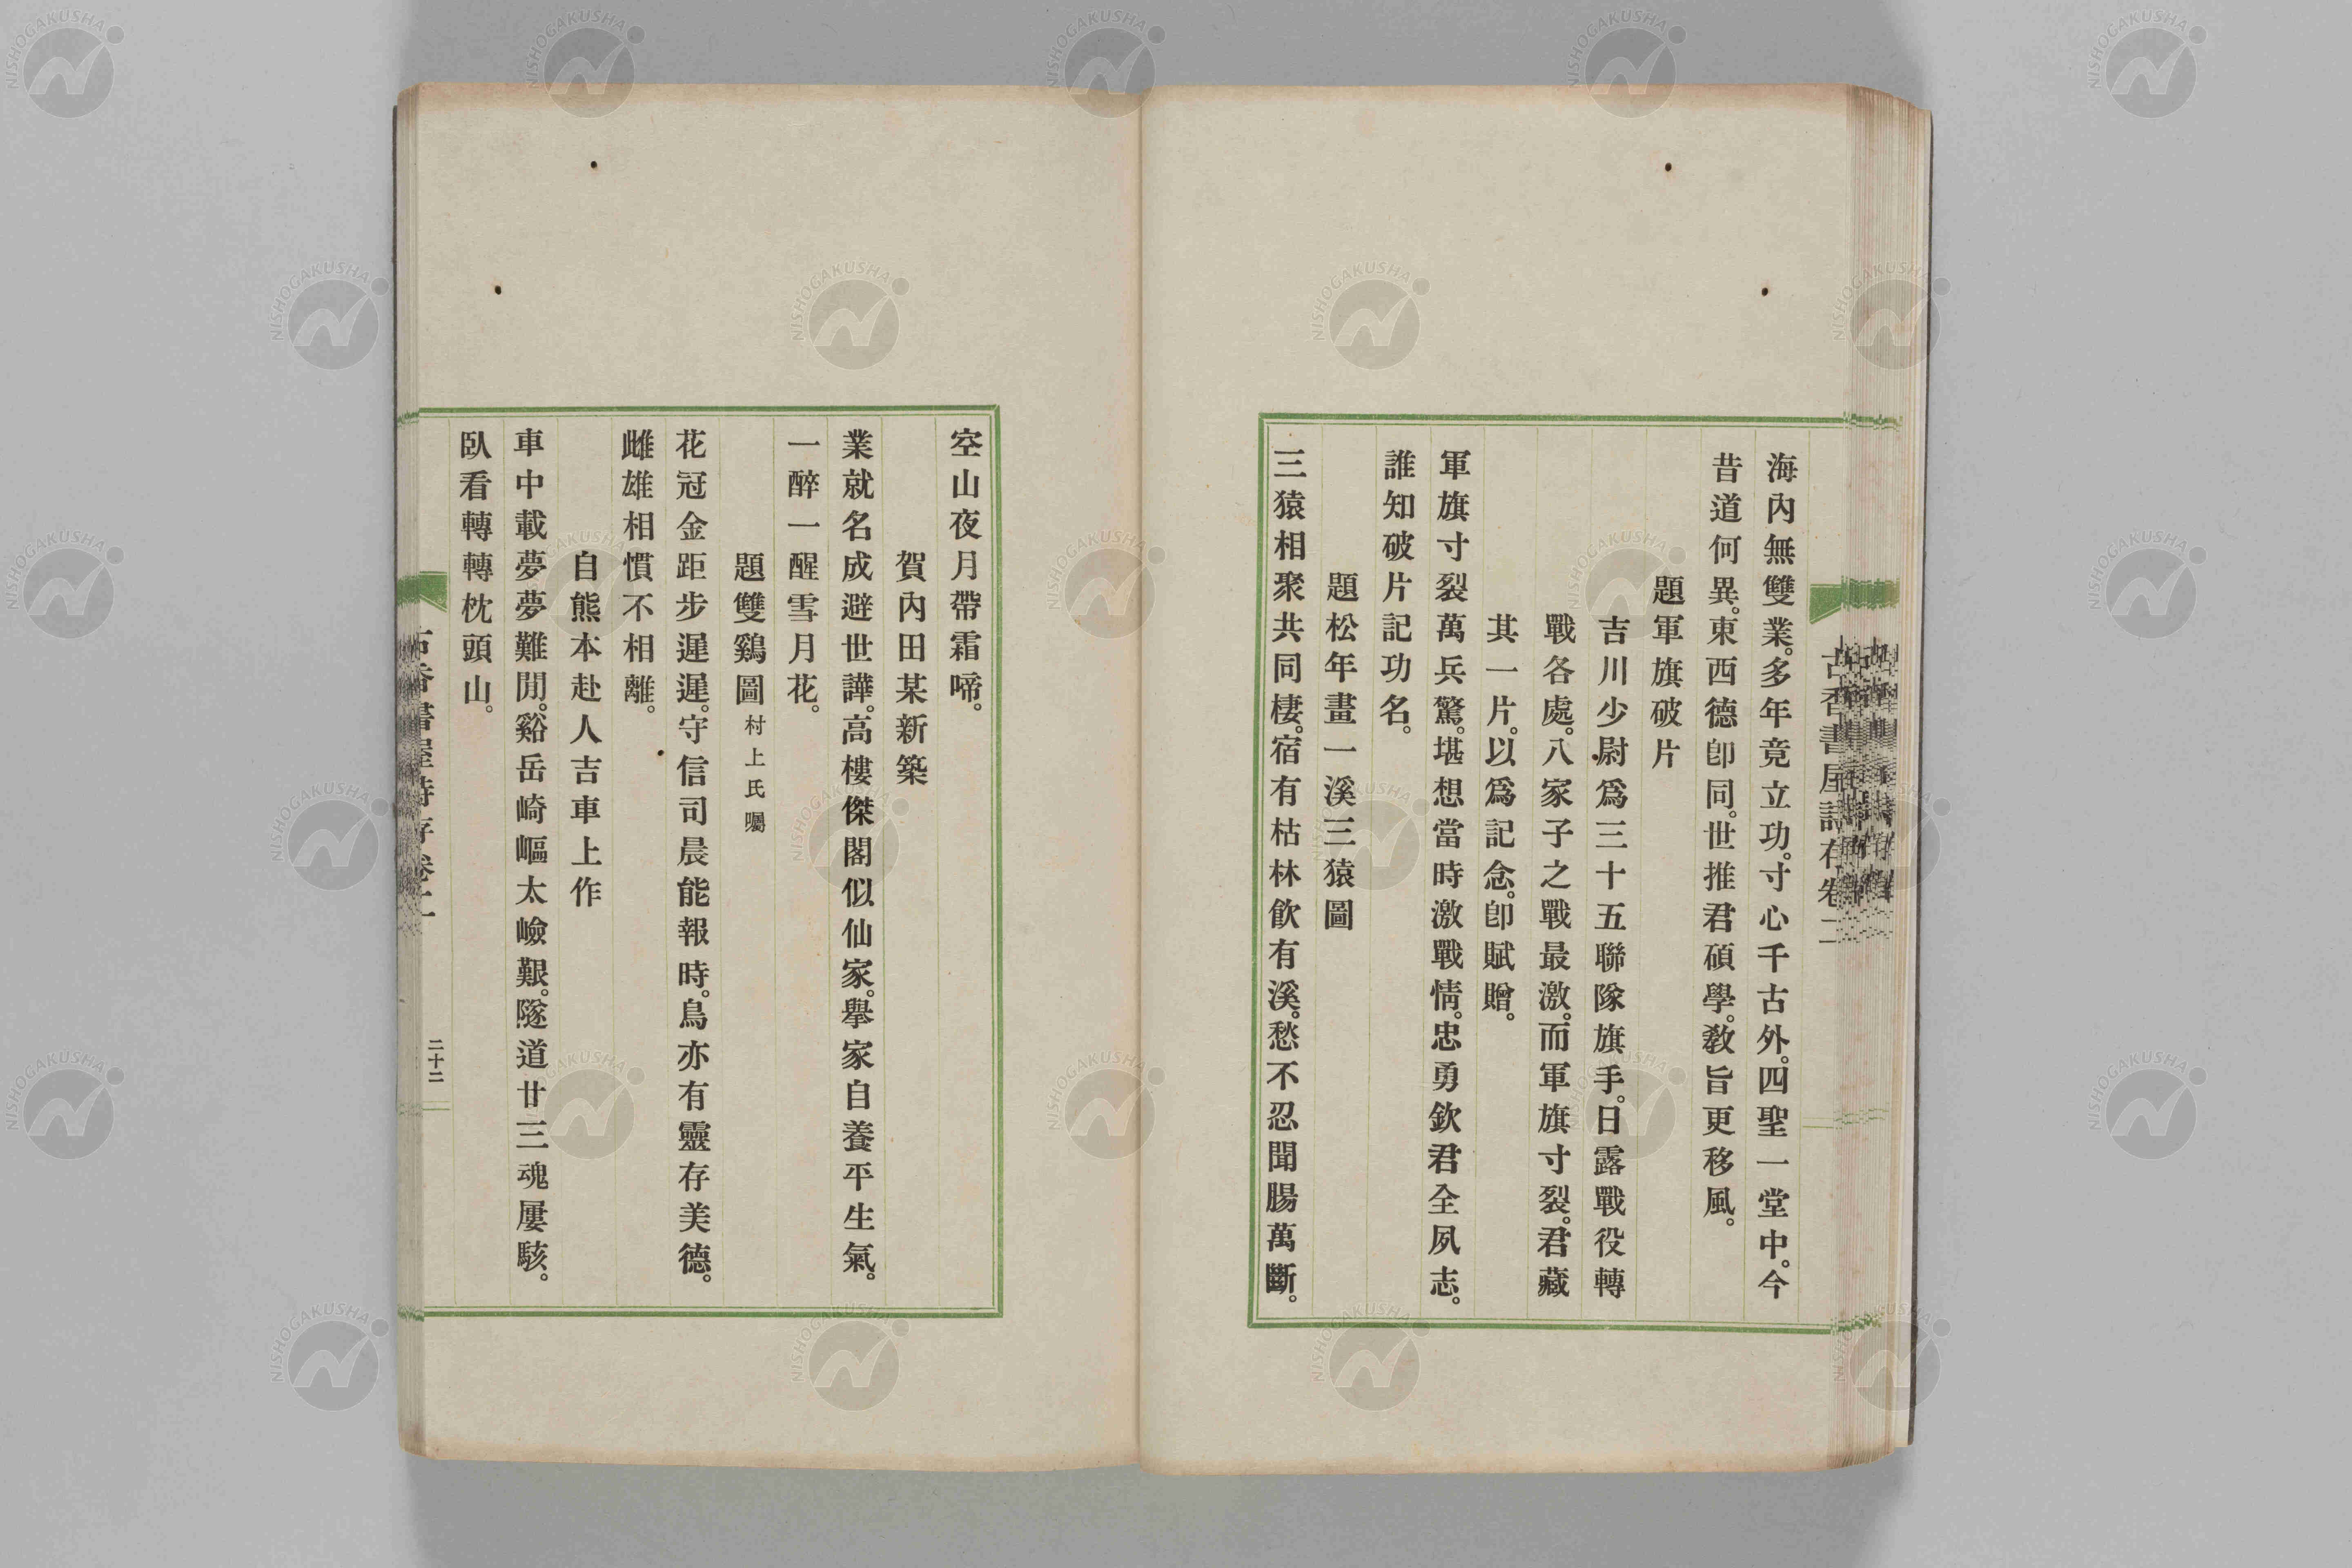 海內無雙業。多年竟立功。寸心千古外。四聖一堂中。今
昔道何異。東西德卽同。世推君碩學。敎旨更移風。
題軍旗破片
吉川少尉爲三十五聯隊旗手。日露戰役轉
戰各處。八家子之戰最激。而軍旗寸裂。君藏
其一片。以爲記念。卽賦贈。
軍旗寸裂萬兵驚。堪想當時激戰情。忠勇欽君全夙志。
誰知破片記功名。
題松年畫一溪三猿圖
三猿相聚共同棲。宿有枯林飮有溪。愁不忍聞腸萬斷。
空山夜月帶霜啼。
賀內田某新築
業就名成避世譁。高樓傑閣似仙家。擧家自養平生氣。
一醉一醒雪月花。
題雙鷄圖村上氏囑
花冠金距步遲遲。守信司晨能報時。鳥亦有靈存美德。
雌雄相慣不相離。
自熊本赴人吉車上作
車中載夢夢難閒。谿岳崎嶇太嶮艱。隧道廿三魂屢駭。
臥看轉轉枕頭山。
古香書屋詩存卷二
二十二
NISHOGAKUSHA